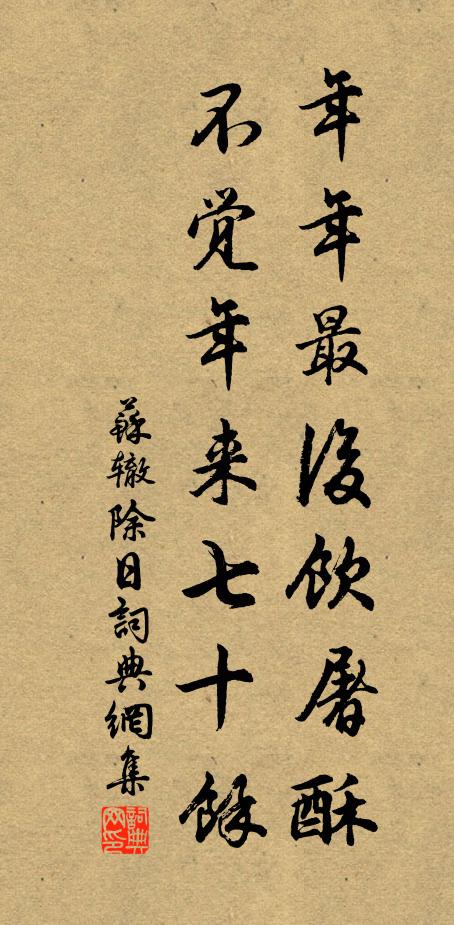 年年最後飲屠酥
不覚年来七十餘
蘇辙除日詞典網集
詞典网印